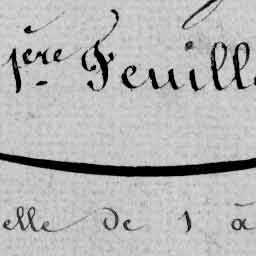 1ère Feuille
elle de 1 à